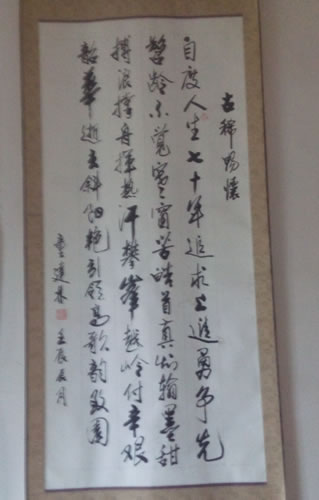 古稀畅怀
自度人生七十年追求上进勇争先
髫龄不觉寒窗苦皓首真知翰墨甜
搏浪撑舟挥热汗攀峰越岭付辛艰
韶华逝去斜阳艳引领高歌韵致圆
壬辰辰月